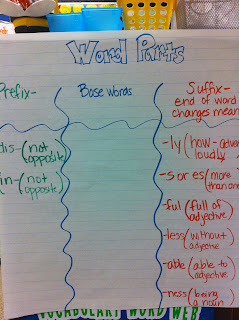 Word Parts
Prefix-
dis-(not
opposite)
in-(not
opposite)
Base words
Suffix-
end of word
changes mean
-ly (how-adver
loudly
-s or es (more
than one
-ful (full of
adjective)
-less (without
adjective)
-able (able to
adjective)
-ness (being
a noun)
VOCABULARY WORD WEB